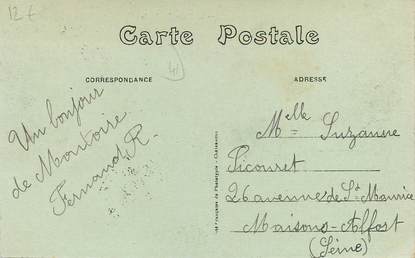 12 €
Carte Postale
41
CORRESPONDANCE
ADRESSE
Un bonjour
de Montoire
Fernand R.
Melle Suzanne
Picouret
26 avenue de St Maurice
Maisons-Alfort
(Seine)